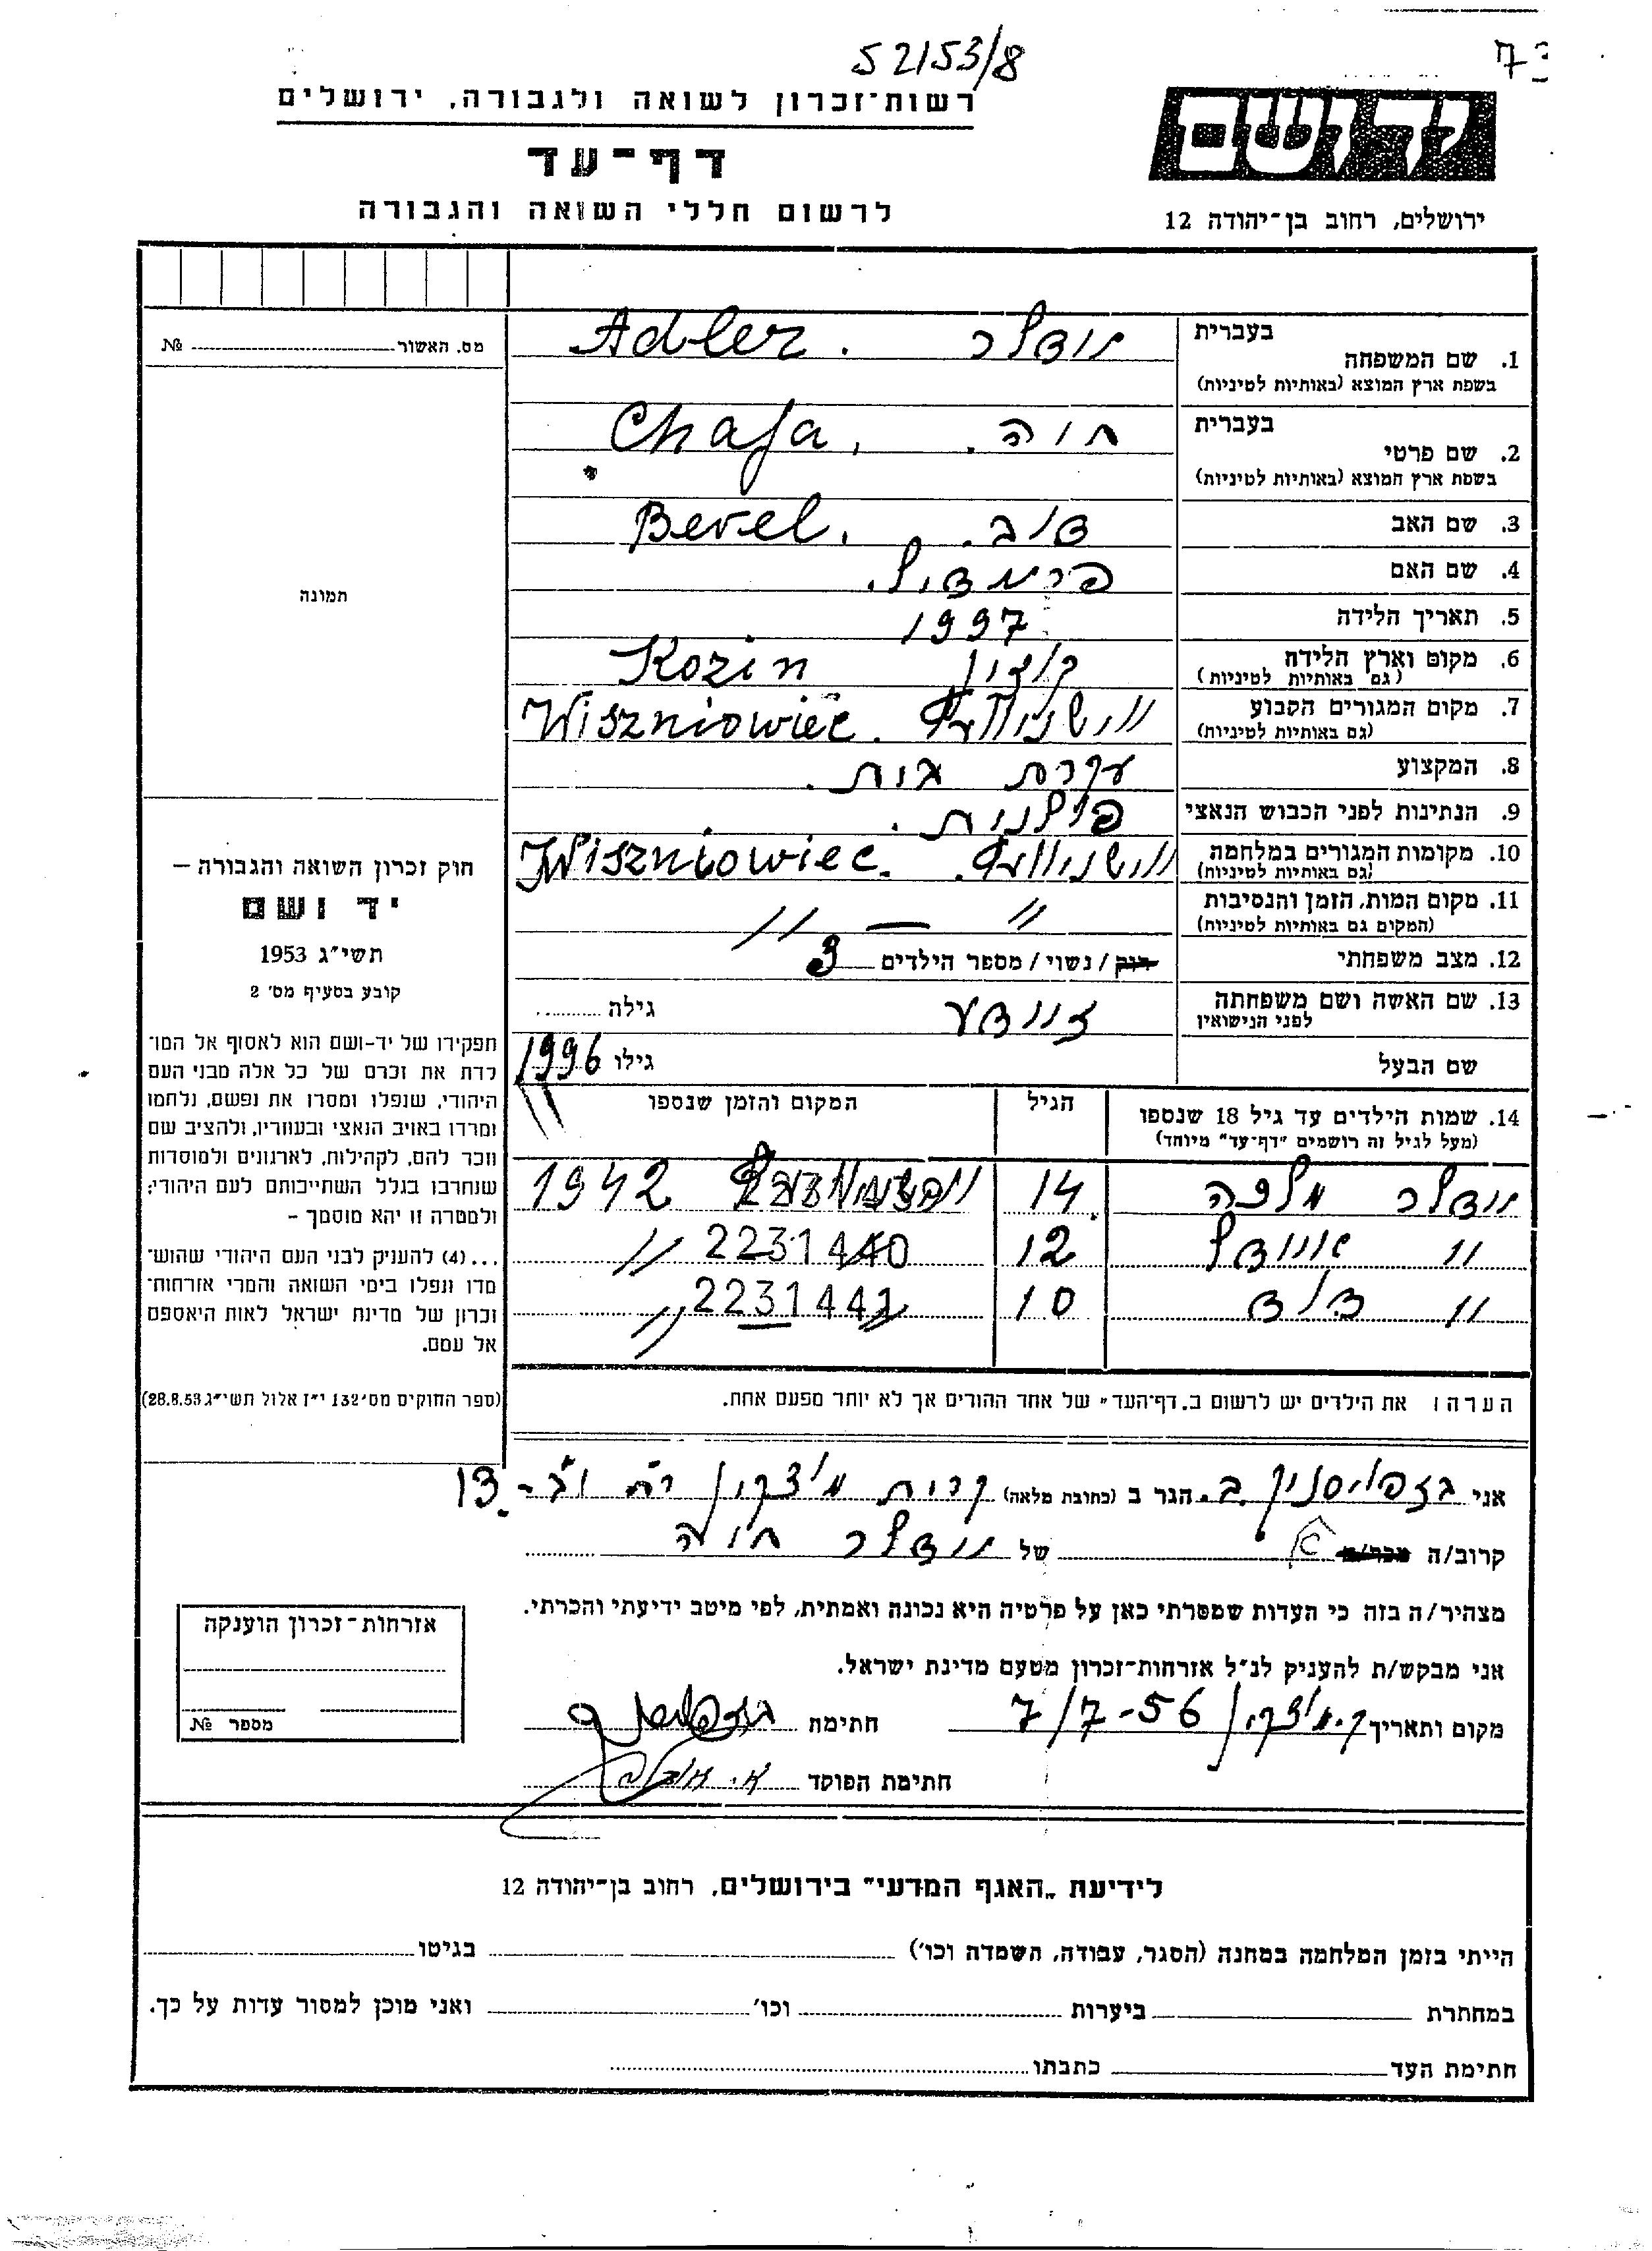 52153/8
73
רשות־זכרון לשואה ולגבורה, ירושלים
יד ושם
דף־עד
לרשום חללי השואה והגבורה
ירושלים, רחוב בן־יהודה 12
בעברית
1. שם המשפחה אדלר . Adler
בשפת ארץ המוצא (באותיות לטיניות)
מס. האשור № 
בעברית
2. שם פרטי חוה . Chaja
בשפת ארץ המוצא (באותיות לטיניות)
3. שם האב דוב . Berel
4. שם האם פריידיל.
5. תאריך הלידה 1997
6. מקום וארץ הלידה קוזין Kozin
(גם באותיות לטיניות)
7. מקום המגורים הקבוע Wiszniowiec.
(גם באותיות לטיניות)
8. המקצוע עקרת בית.
9. הנתינות לפני הכבוש הנאצי פולנית.
10. מקומות המגורים במלחמה Wiszniowiec.
(גם באותיות לטיניות)
11. מקום המות, הזמן והנסיבות // — //
(המקום גם באותיות לטיניות)
12. מצב משפחתי רוק / נשוי / מספר הילדים 3
13. שם האשה ושם משפחתה גילה
לפני הנישואין
שם הבעל גילו 1996
תמונה
חוק זכרון השואה והגבורה –
יד ושם
תשי"ג 1953
קובע בסעיף מס' 2
תפקידו של יד-ושם הוא לאסוף אל המו־
לדת את זכרם של כל אלה מבני העם
היהודי, שנפלו ומסרו את נפשם, נלחמו
ומרדו באויב הנאצי ובעוזריו, ולהציב שם
וזכר להם, לקהילות, לארגונים ולמוסדות
שנחרבו בגלל השתייכותם לעם היהודי;
ולמטרה זו יהא מוסמך –
...(4) להעניק לבני העם היהודי שהוש־
מדו ונפלו בימי השואה והמרי אזרחות־
זכרון של מדינת ישראל לאות היאספם
אל עמם.
(ספר החוקים מס' 132 י"ז אלול תשי"ג 28.8.53)
14. שמות הילדים עד גיל 18 שנספו הגיל המקום והזמן שנספו
(מעל לגיל זה רושמים "דף־עד" מיוחד)
אדלר מלכה 14 1942
// איידל 12 2231440 //
// דוד 10 2231441 //
הערה: את הילדים יש לרשום ב„דף־העד" של אחד ההורים אך לא יותר מפעם אחת.
אני ב. הגר ב (כתובת מלאה) קרית מוצקין 13
קרוב/ה מכר/ה של אדלר חיה
מצהיר/ה בזה כי העדות שמסרתי כאן על פרטיה היא נכונה ואמתית, לפי מיטב ידיעתי והכרתי.
אני מבקש/ת להעניק לנ"ל אזרחות־זכרון מטעם מדינת ישראל.
מקום ותאריך ק. מוצקין 7/7-56 חתימת
חתימת הפוקד
אזרחות־זכרון הוענקה
מספר №
לידיעת „האגף המדעי" בירושלים, רחוב בן־יהודה 12
הייתי בזמן המלחמה במחנה (הסגר, עבודה, השמדה וכו') בגיטו
במחתרת ביערות וכו' ואני מוכן למסור עדות על כך.
חתימת העד כתבתו